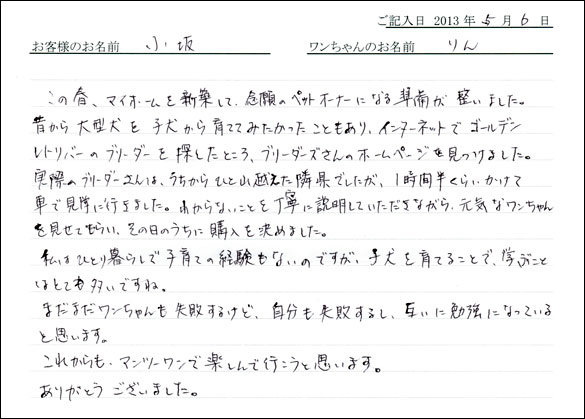 ご記入日 2013年5月6日
お客様のお名前 小坂 ワンちゃんのお名前 りん
この春、マイホームを新築して、念願のペットオーナーになる準備が整いました。
昔から大型犬を子犬から育ててみたかったこともあり、インターネットでゴールデン
レトリバーのブリーダーを探したところ、ブリーダーズさんのホームページを見つけました。
実際のブリーダーさんは、うちからひと山越えた隣県でしたが、1時間半くらいかけて
車で見学に行きました。わからないことを丁寧に説明していただきながら、元気なワンちゃん
を見せてもらい、その日のうちに購入を決めました。
私はひとり暮らしで子育ての経験もないのですが、子犬を育てることで、学ぶこと
はとても多いですね。
まだまだワンちゃんも失敗するけど、自分も失敗するし、互いに勉強になっている
と思います。
これからも、マンツーワンで楽しんで行こうと思います。
ありがとうございました。